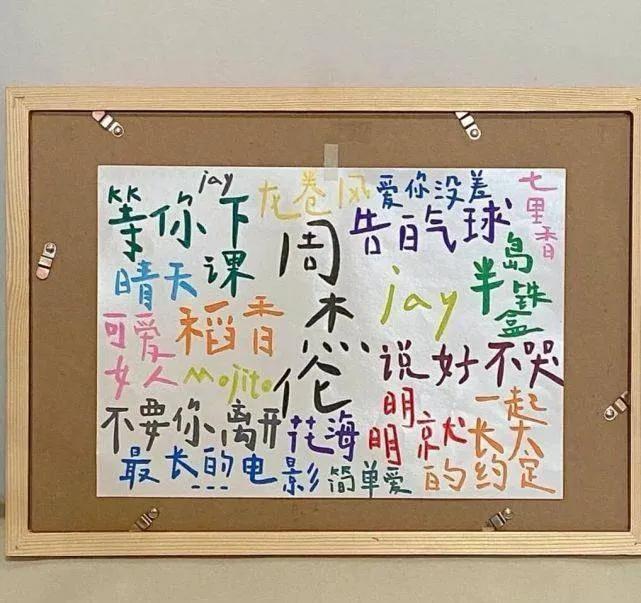 jay
等你下课
龙卷风
爱你没差
七里香
告白气球
周杰伦
晴天
稻香
jay
半岛铁盒
可爱女人
mojito
说好不哭
不要你离开
花海
明明就
一起长大的约定
最长的电影
简单爱